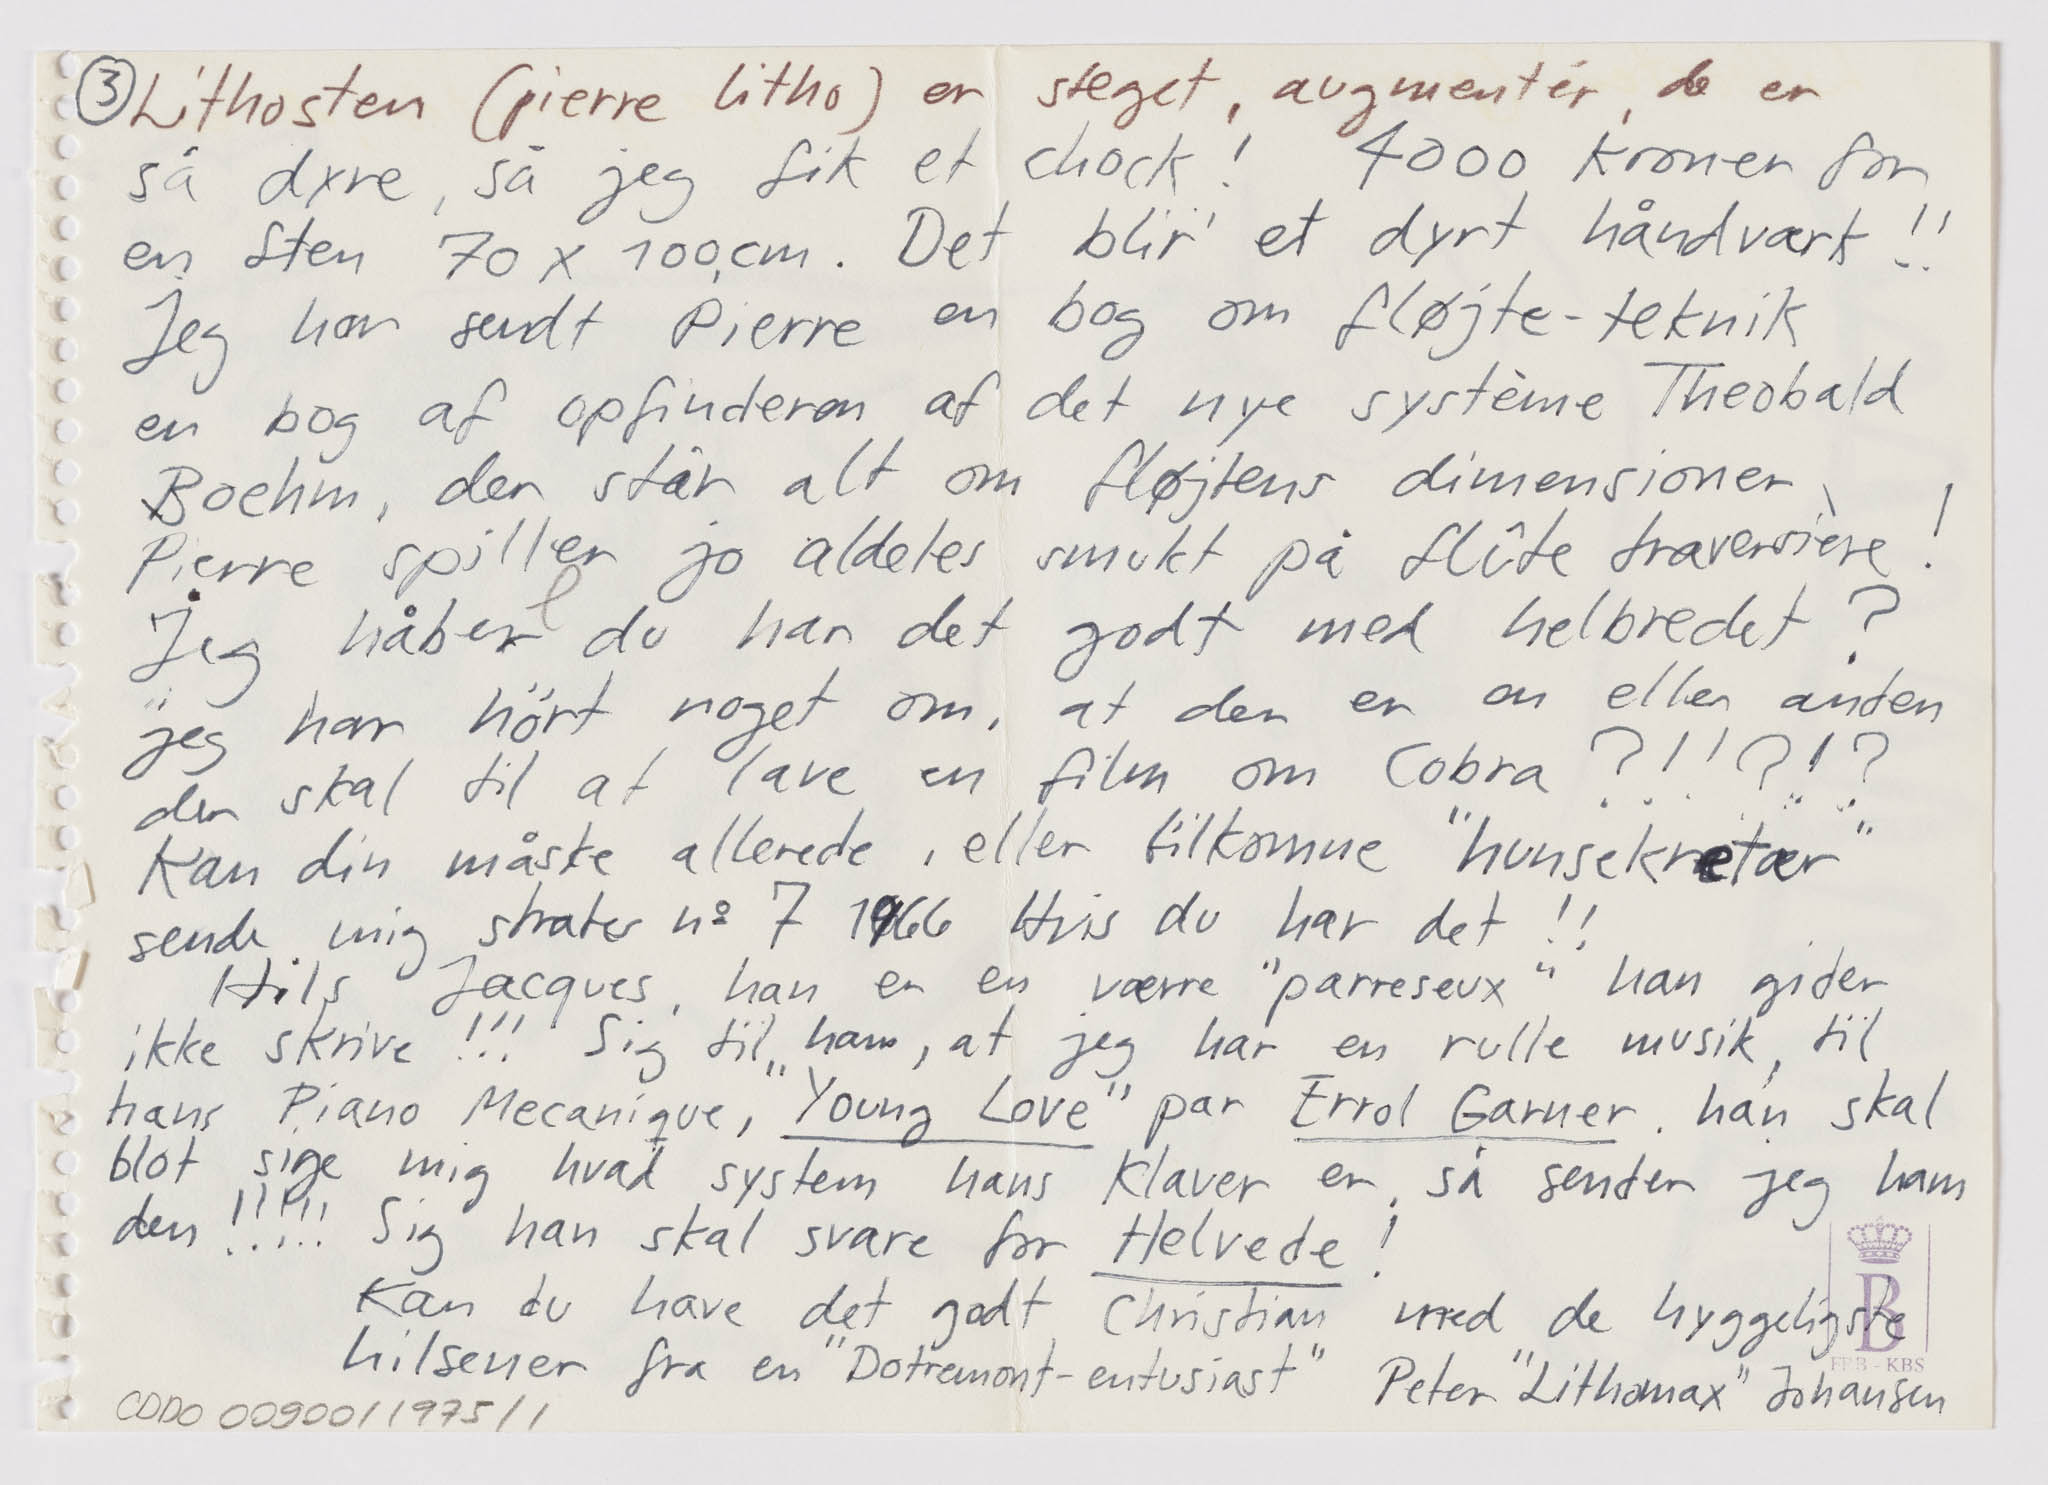 ③ Lithosten (pierre litho) er steget, augmentér, de er
så dyre, så jeg fik et chock! 4000 kroner for
en sten 70 x 100,cm. Det blir' et dyrt håndværk!!
Jeg har sendt Pierre en bog om fløjte-teknik
en bog af opfinderen af det nye système Theobald
Boehm, der står alt om fløjtens dimensioner
Pierre spiller jo aldeles smukt på flûte traversière!
Jeg håber du har det godt med helbredet?
jeg har hört noget om, at der er en eller anden
der skal til at lave en film om Cobra ?!!?!?
Kan din måske allerede, eller tilkomne "hunsekretær"
sende mig strates nº 7 1966 Hvis du har det!!
Hils Jacques, han er en værre "parreseux" han gider
ikke skrive!!! Sig til ham, at jeg har en rulle musik, til
hans Piano Mecanique, "Young Love" par Errol Garner. han skal
blot sige mig hvad system hans klaver er, så sender jeg ham
den!!!!! Sig han skal svare for Helvede!
Kan du have det godt Christian med de hyggeligste
hilsener fra en "Dotremont-entusiast" Peter "Lithomax" Johansen
CDDO 00900/1975/1
B
FRB-KBS